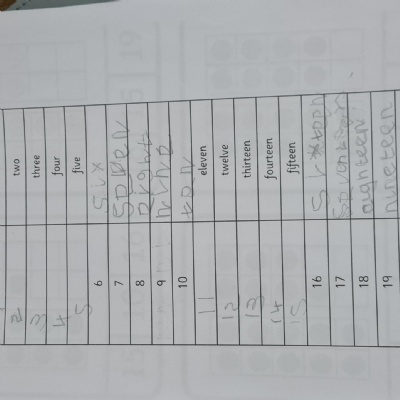 2 two
3 three
4 four
5 five
6 six
7 seven
8 eight
9 nine
10 ten
11 eleven
12 twelve
13 thirteen
14 fourteen
15 fifteen
16 sixteen
17
18 eighteen
19 nineteen